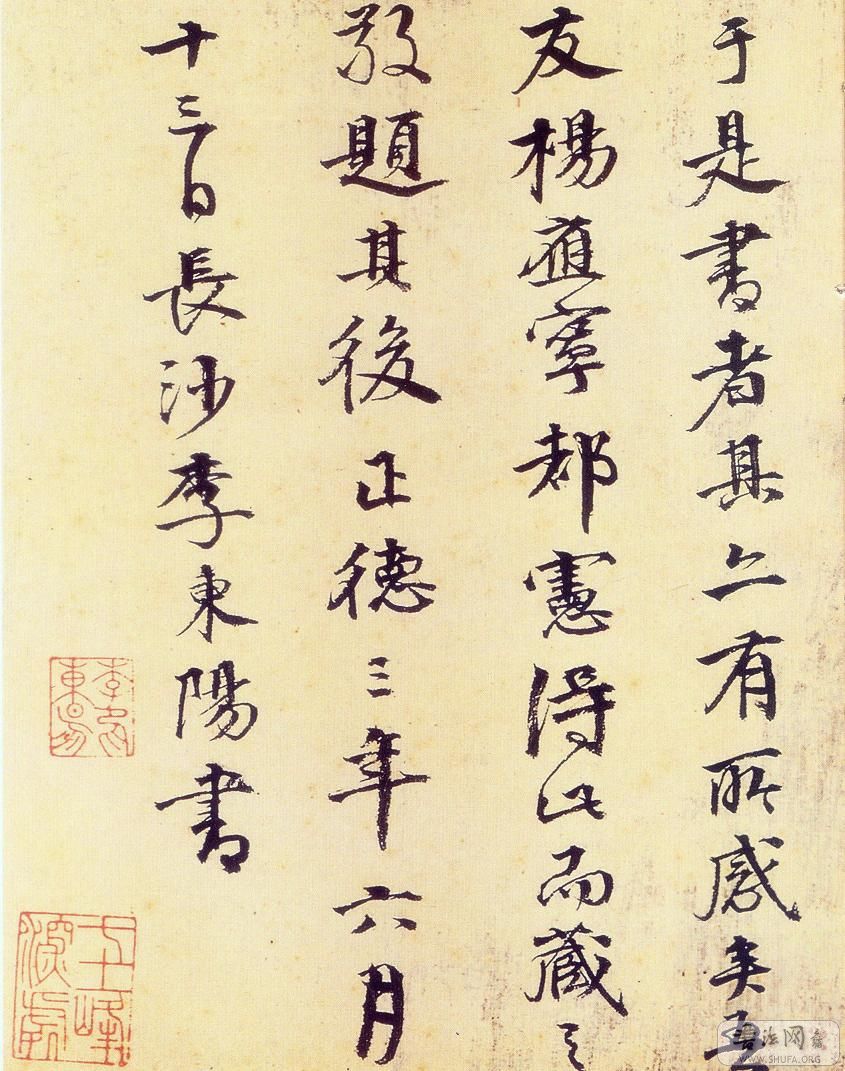 于是書者其亦有所感矣吾
友楊應寧都憲得此而藏之
敬題其後正德三年六月
十三日長沙李東陽書
七十二峰深處
书法网
WWW.SHUFA.ORG